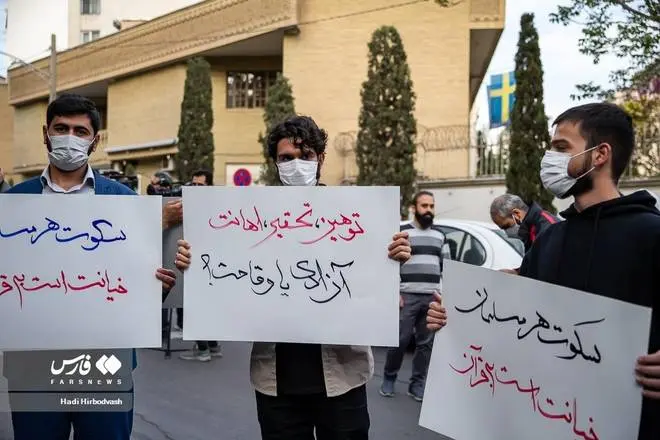 سکوت هر مسلـ
خیانت است به قر
توهین، تحقیر، اهانت
آزادی یا وقاحت؟
سکوت هر مسلمان
خیانت است به قرآن
فارس
FARSNEWS
Hadi Hirbodvash